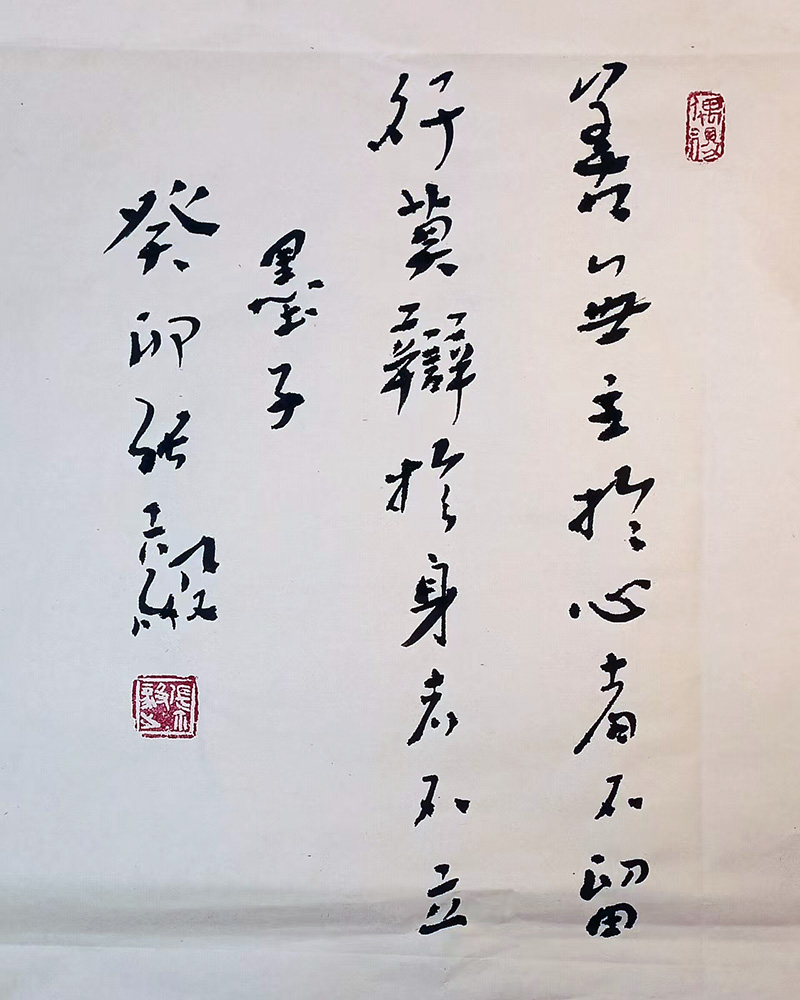 善無主於心者不留
行莫辯於身者不立
墨子
癸卯張